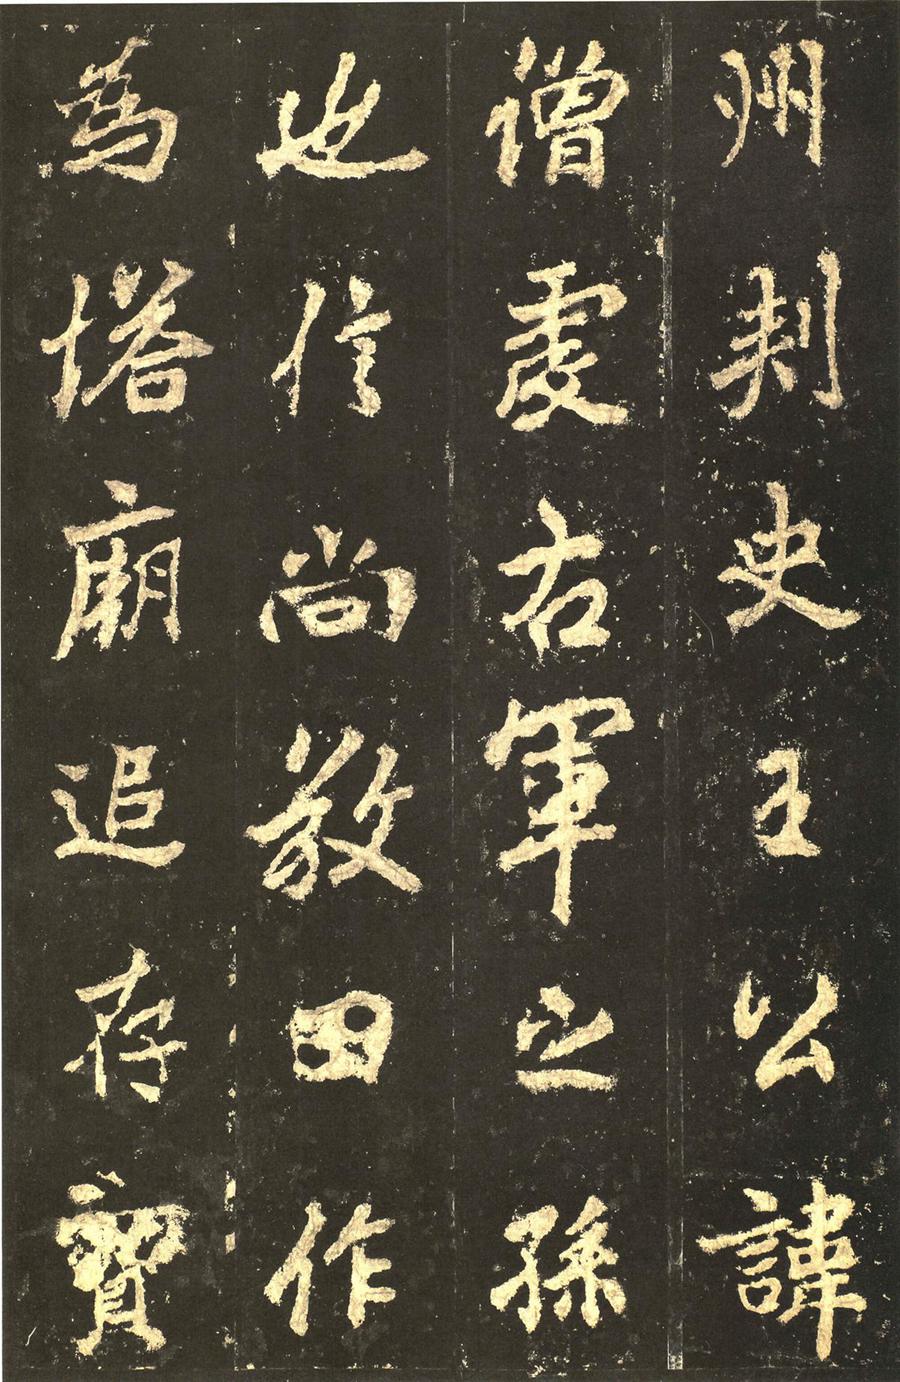 州刾史王公諱
僧虔右軍之孫
也信尚敬田作
為塔廟追存寶